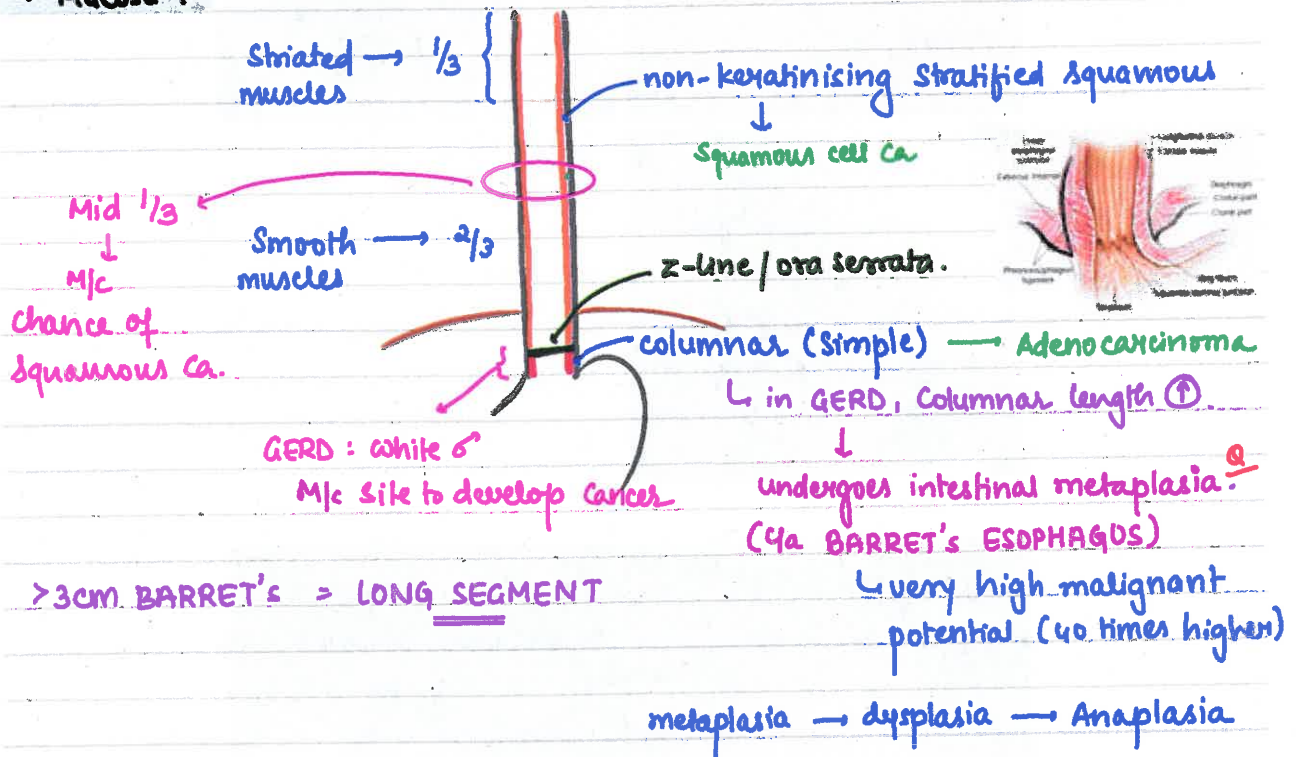 Mucosa :
Striated → 1/3
muscles
non-keratinising stratified squamous
↓
Squamous cell Ca
Mid 1/3
↓
M/c
chance of
squamous ca.
Smooth → 2/3
muscles
z-line / ora serrata.
columnar (simple) → Adenocarcinoma
↳ in GERD, Columnar length ↑
↓
undergoes intestinal metaplasia. Q
(4a BARRET's ESOPHAGUS)
↳ very high malignant
potential (40 times higher)
GERD : white ♂
M/c site to develop cancer
>3cm BARRET's = LONG SEGMENT
metaplasia → dysplasia → Anaplasia